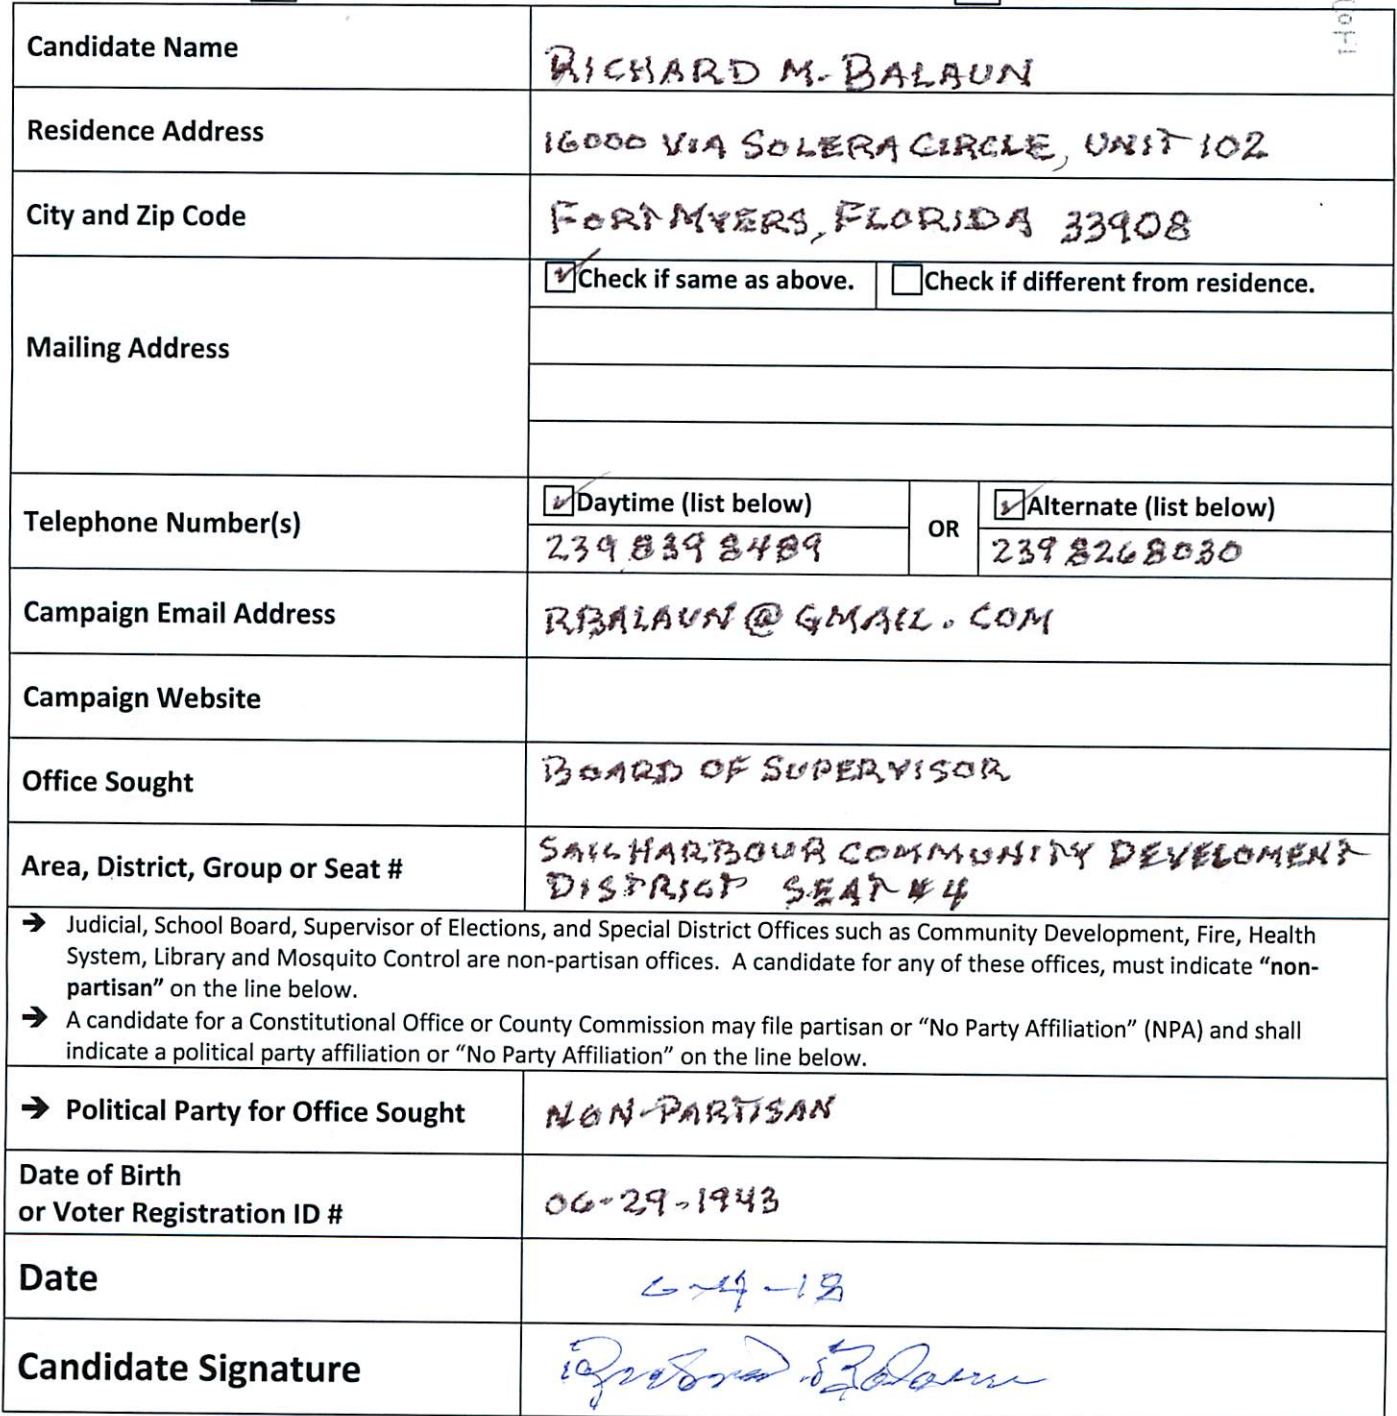 Candidate Name
RICHARD M. BALAUN
Residence Address
16000 VIA SOLERA CIRCLE, UNIT 102
City and Zip Code
FORT MYERS, FLORIDA 33908
Mailing Address
Check if same as above. Check if different from residence.
Telephone Number(s)
Daytime (list below) OR Alternate (list below)
239 839 8489 239 8268030
Campaign Email Address
RBALAUN@GMAIL.COM
Campaign Website
Office Sought
BOARD OF SUPERVISOR
Area, District, Group or Seat #
SAIL HARBOUR COMMUNITY DEVELOMENT
DISTRICT SEAT #4
→ Judicial, School Board, Supervisor of Elections, and Special District Offices such as Community Development, Fire, Health
System, Library and Mosquito Control are non-partisan offices. A candidate for any of these offices, must indicate “non-
partisan” on the line below.
→ A candidate for a Constitutional Office or County Commission may file partisan or “No Party Affiliation” (NPA) and shall
indicate a political party affiliation or “No Party Affiliation” on the line below.
→ Political Party for Office Sought
NON-PARTISAN
Date of Birth
or Voter Registration ID #
06-29-1943
Date
6-4-18
Candidate Signature